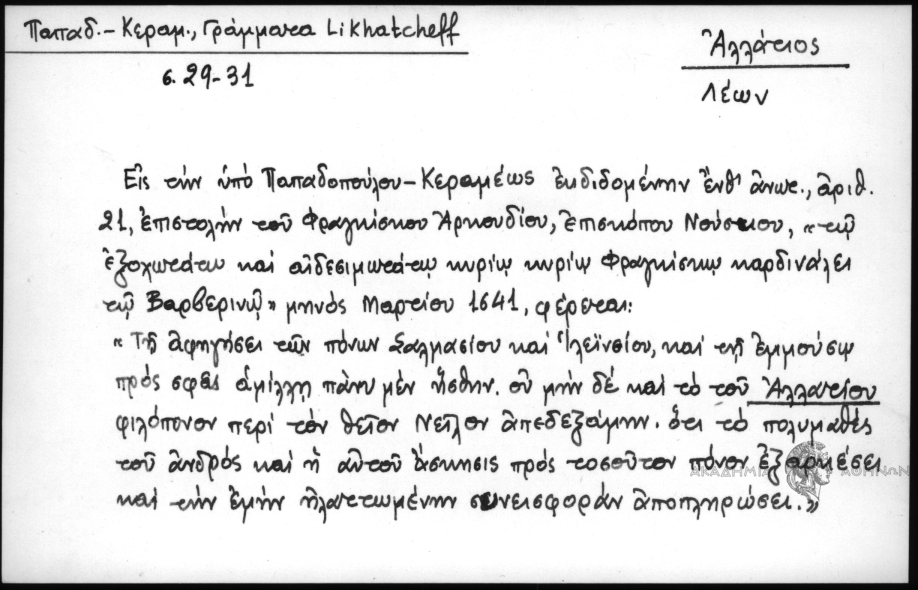 Παπαδ.-Κεραμ., Γράμματα Likhatcheff
σ. 29-31
Ἀλλάτιος
Λέων
Εἰς τὴν ὑπὸ Παπαδοπούλου-Κεραμέως ἐκδιδομένην ἔνθ' ἀνωτ., ἀριθ.
21, ἐπιστολὴν τοῦ Φραγκίσκου Ἀρκουδίου, ἐπισκόπου Νούσκου, «τῷ
ἐξοχωτάτῳ καὶ αἰδεσιμωτάτῳ κυρίῳ κυρίῳ Φραγκίσκῳ καρδινάλει
τῷ Βαρβερινῷ» μηνὸς Μαρτίου 1641, φέρεται:
«Τῇ ἀφηγήσει τῶν πόνων Σαλμασίου καὶ Ἁλεϊνσίου, καὶ τῇ ἐμμούσῳ
πρὸς σφᾶς ἁμίλλῃ πάνυ μὲν ἥσθην. οὐ μὴν δὲ καὶ τὸ τοῦ Ἀλλατίου
φιλόπονον περὶ τὸν θεῖον Νεῖλον ἀπεδεξάμην. ὅτι τὸ πολυμαθὲς
τοῦ ἀνδρὸς καὶ ἡ αὐτοῦ ἄσκησις πρὸς τοσοῦτον πόνον ἐξαρκέσει
καὶ τὴν ἐμὴν ἠλαττωμένην συνεισφορὰν ἀποπληρώσει.»
ΑΚΑΔΗΜΙΑ ΑΘΗΝΩΝ